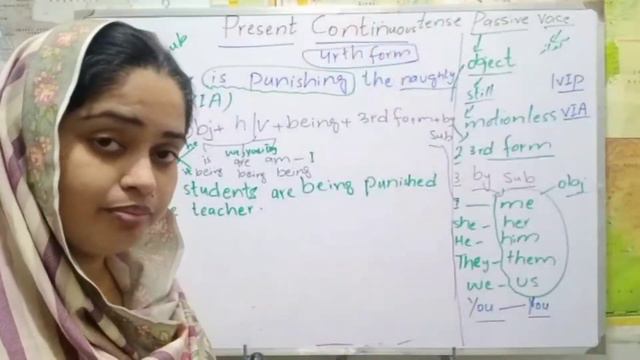 Present Continuous tense Passive Voice
Sub
4rth form
object
is punishing the naughty
1 VIP
still
(IA)
motionless VIA
obj + h/v + being + 3rd form + by
Sub
2 3rd form
is are am - I
being being being
3 by sub
obj
students are being punished
teacher.
I — me
she - her
He - him
They - them
we - us
You — You